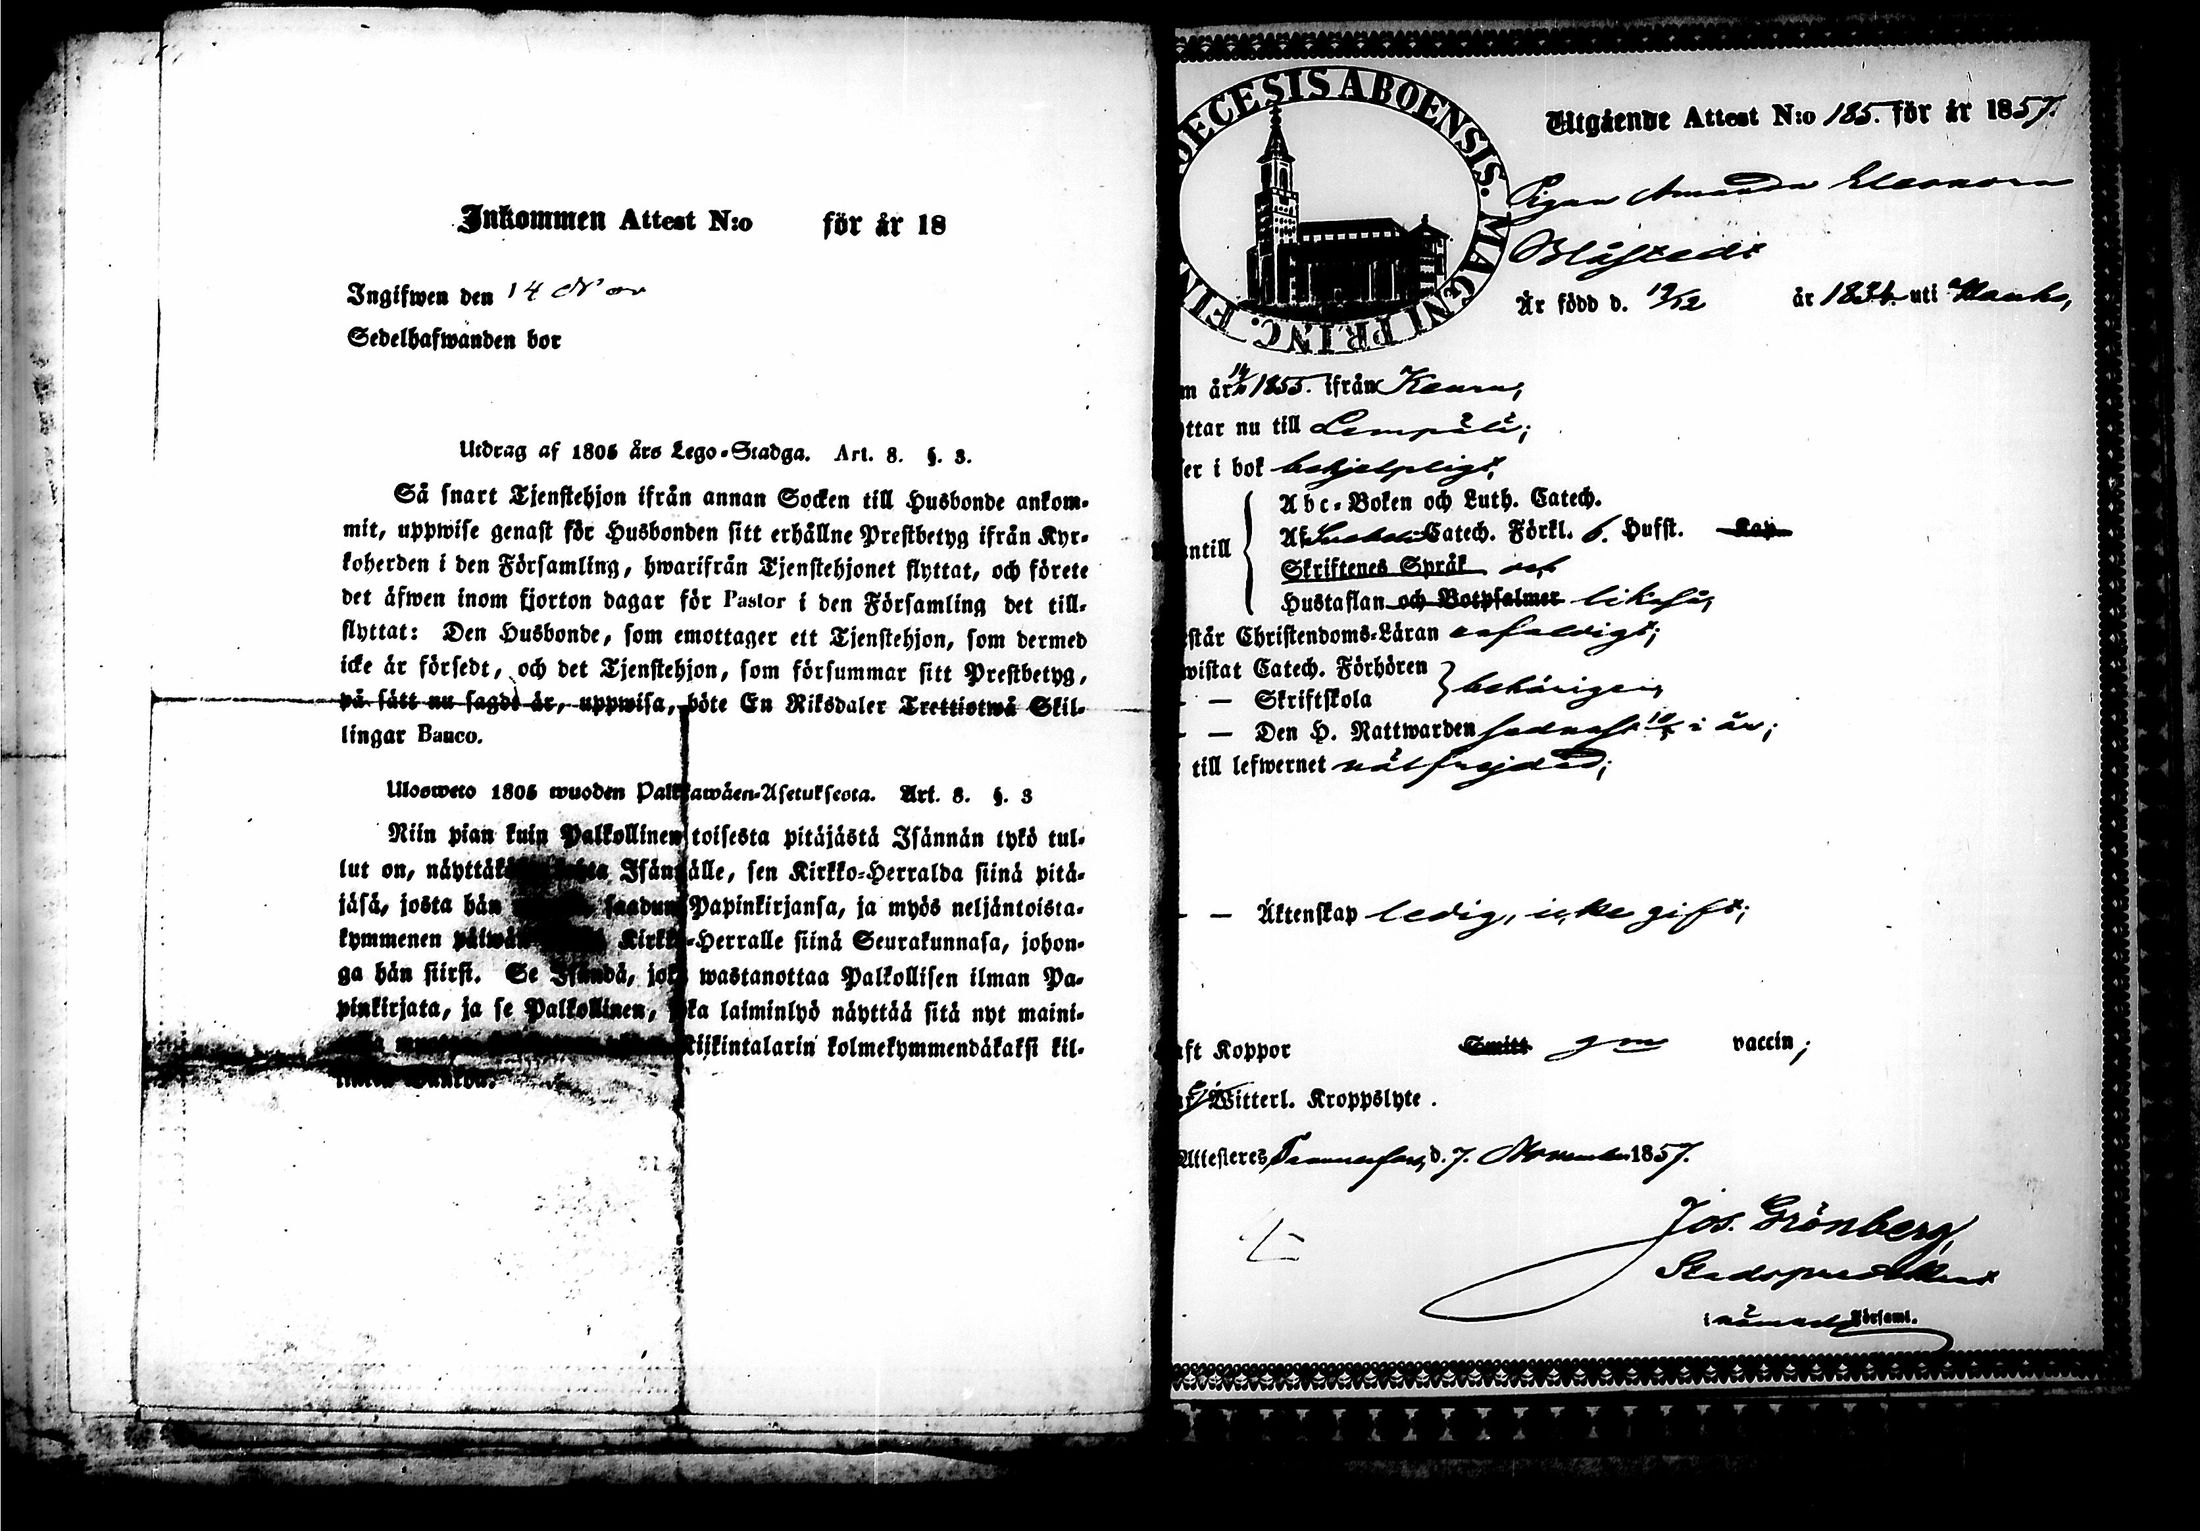 Inkommen Attest N:o för år 18
Ingifwen den 14 Nov
Sedelhafwanden bor
Utdrag af 1805 års Lego-Stadga. Art. 8. §. 3.
Så snart Tjenstehjon ifrån annan Socken till Husbonde ankom-
mit, uppwise genast för Husbonden sitt erhållne Prestbetyg ifrån Kyr-
koherden i den Församling, hwarifrån Tjenstehjonet flyttat, och förete
det äfwen inom fjorton dagar för Pastor i den Församling det till-
flyttat: Den Husbonde, som emottager ett Tjenstehjon, som dermed
icke är försedt, och det Tjenstehjon, som försummar sitt Prestbetyg,
på sätt nu sagdt är, uppwisa, böte En Riksdaler Trettiotwå Skil-
lingar Banco.
Ulosweto 1805 wuoden Palkkawäen-Asetuksesta. Art. 8. §. 3
Niin pian kuin Palkollinen toisesta pitäjästä Isännän tykö tul-
lut on, näyttäkö Isännälle, sen Kirkko-Herralda siinä pitä-
jäsä, josta hän saadun Papinkirjansa, ja myös neljäntoista-
kymmenen päiwän Kirkko-Herralle siinä Seurakunnasa, johon-
ga hän siirsi. Se Isändä, joka wastanottaa Palkollisen ilman Pa-
pinkirjata, ja se Palkollinen, joka laiminlyö näyttää sitä nyt maini-
Riikintalarin kolmekymmendäkaksi kil-
DECESIS ABOENSIS. MAGNI PRINC. FIN
Utgående Attest N:o 185. för år 1857.
Pigan Amanda Eleonora
Blåstedt
Är född d. 19/12 år 1834. uti Hauho,
m år 1855. ifrån
ttar nu till Lempälä;
er i bok behjelpligt,
Abc-Boken och Luth. Catech.
Af Catech. Förkl. 6. Hufst. Kap
ntill
Skriftenes Språk
Hustaflan och Botpsalmer likaså,
står Christendoms-Läran enfaldigt;
wistat Catech. Förhören
- - Skriftskola behörigen,
- - Den H. Nattwarden sednast i år;
till lefwernet wälfrejdad;
- - Äktenskap ledig, icke gift;
aft Koppor Smitt gm vaccin;
af Ej Witterl. Kroppslyte.
Attesteres Tammerfors, d. 7. November 1857.
Jos. Grönberg,
Stadspredikant
i nämnde Församl.